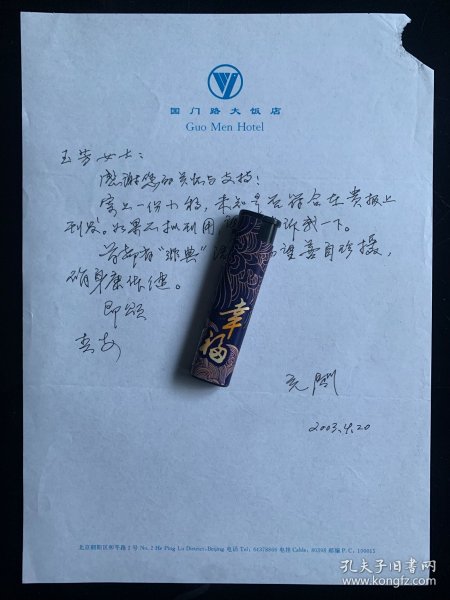 国门路大饭店
Guo Men Hotel
玉芳女士:
感谢您的关怀与支持!
寄上一份小稿,未知是否符合在贵报上
刊发。如果不拟利用,诉我一下。
首都有“非典”望善自珍摄,
确身康体健。
即颂
春安
幸福
2003.4.20
北京朝阳区和平路1号 No. 2 He Ping Lu District, Beijing 电话 Tel: 64378866 电挂 Cable: 80398 邮编 P.C. 100015
孔夫子旧书网
www.kongfz.com